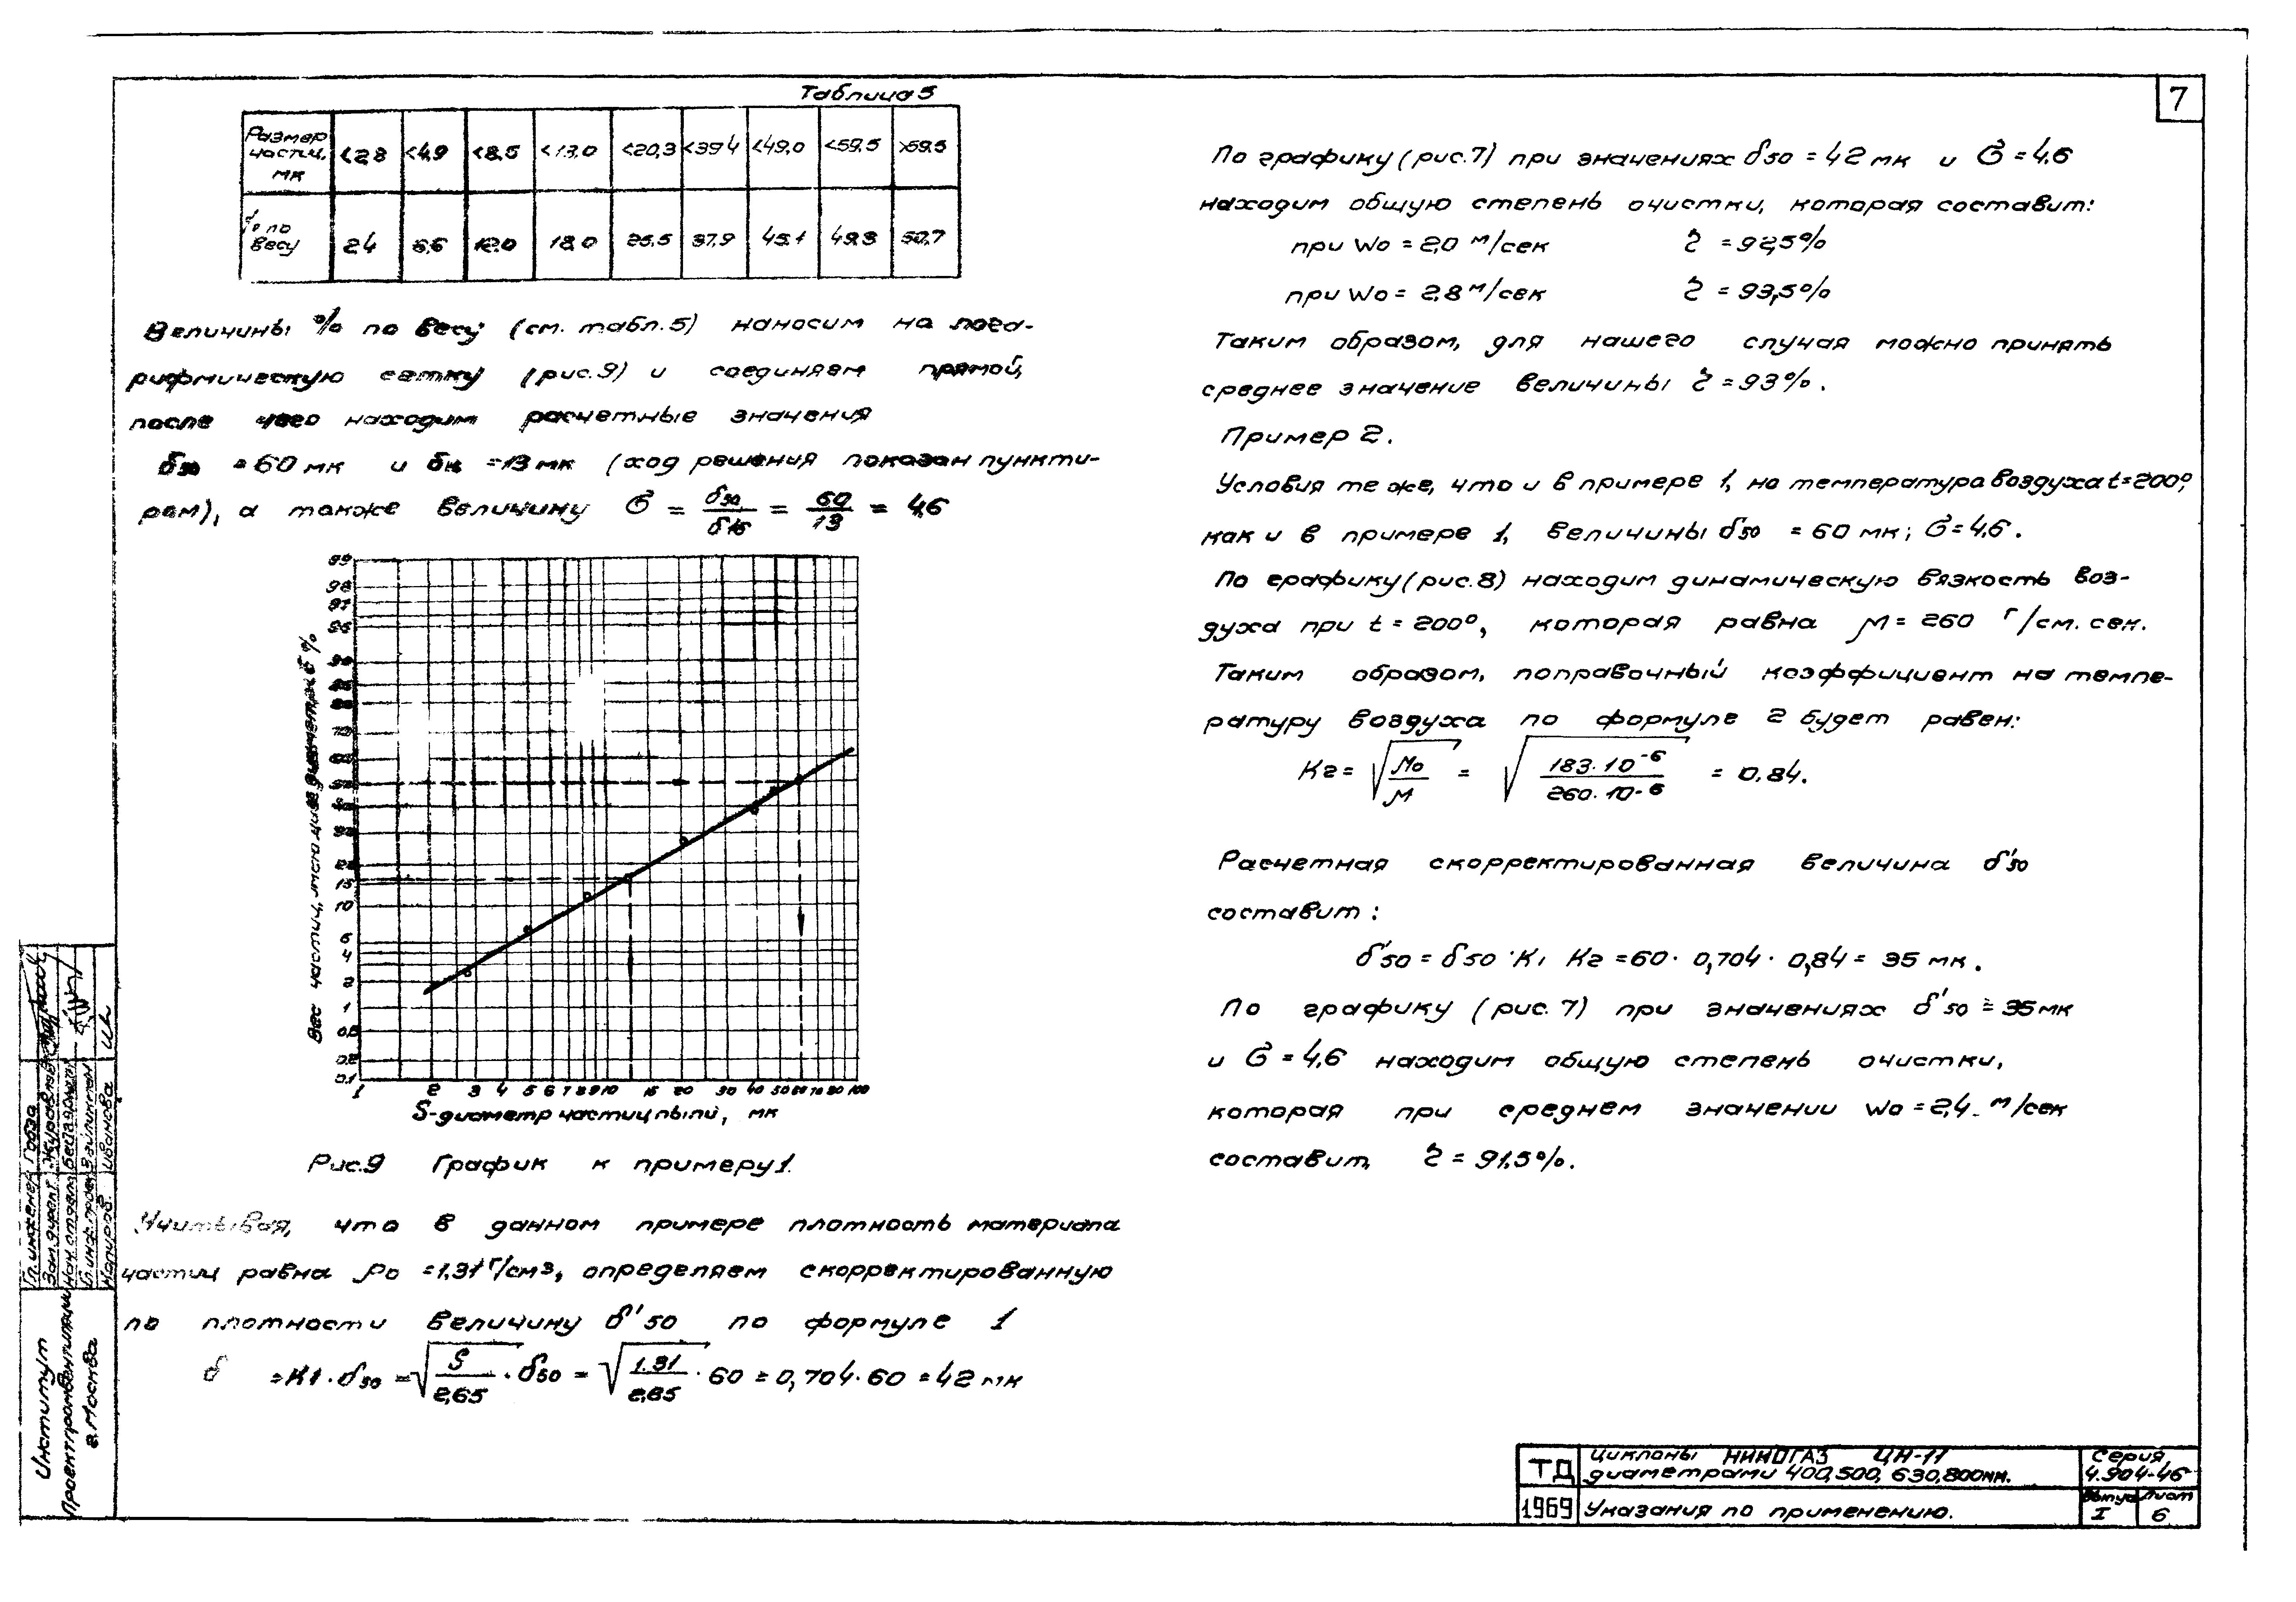 7
Таблица 5
Размер частиц, мк <2,8 <4,9 <8,5 <13,0 <20,3 <39,4 <49,0 <59,5 >59,5
% по весу 2,4 6,6 12,0 18,0 25,5 37,9 45,1 49,3 50,7
Величины % по весу (см. табл. 5) наносим на лога-
рифмическую сетку (рис. 9) и соединяем прямой,
после чего находим расчетные значения
δ50 = 60 мк и δ16 = 13 мк (ход решения показан пункти-
ром), а также величину σ = δ50/δ16 = 60/13 = 4,6
Вес частиц, %
99
98
97
95
90
85
80
70
60
50
40
30
20
15
10
6
4
2
1
0,5
0,2
0,1
1 2 3 4 5 6 7 8 9 10 15 20 30 40 50 60 70 80 100
S-диаметр частиц пыли, мк
Рис. 9 График к примеру 1.
Учитывая, что в данном примере плотность материала
частиц равна ρо = 1,31 г/см3, определяем скорректированную
по плотности величину δ'50 по формуле 1
δ = К1 · δ50 = √(S/2,65) · δ50 = √(1.31/2,65) · 60 = 0,704 · 60 = 42 мк
По графику (рис. 7) при значениях δ50 = 42 мк и σ = 4,6
находим общую степень очистки, которая составит:
при Wо = 2,0 м/сек η = 92,5%
при Wо = 2,8 м/сек η = 93,5%
Таким образом, для нашего случая можно принять
среднее значение величины η = 93%.
Пример 2.
Условия те же, что и в примере 1, но температура воздуха t = 200°,
как и в примере 1, величины δ50 = 60 мк; σ = 4,6.
По графику (рис. 8) находим динамическую вязкость воз-
духа при t = 200°, которая равна μ = 260 г/см. сек.
Таким образом, поправочный коэффициент на темпе-
ратуру воздуха по формуле 2 будет равен:
К2 = √(μо/μ) = √(183·10-6/260·10-6) = 0,84.
Расчетная скорректированная величина δ'50
составит:
δ'50 = δ50 · К1 К2 = 60 · 0,704 · 0,84 = 35 мк.
По графику (рис. 7) при значениях δ'50 = 35 мк
и σ = 4,6 находим общую степень очистки,
которая при среднем значении Wо = 2,4 м/сек
составит, η = 91,5%.
ТД Циклоны НИИОГАЗ ЦН-11 диаметрами 400, 500, 630, 800мм. Серия 4.904-46
1969 Указания по применению. Выпуск I Лист 6
Гл. инженер
Зам. директ. Журавлев
Нач. отдела
Гл. инж. проек.
Иванова
Институт
Проектпромвентиляция
г. Москва